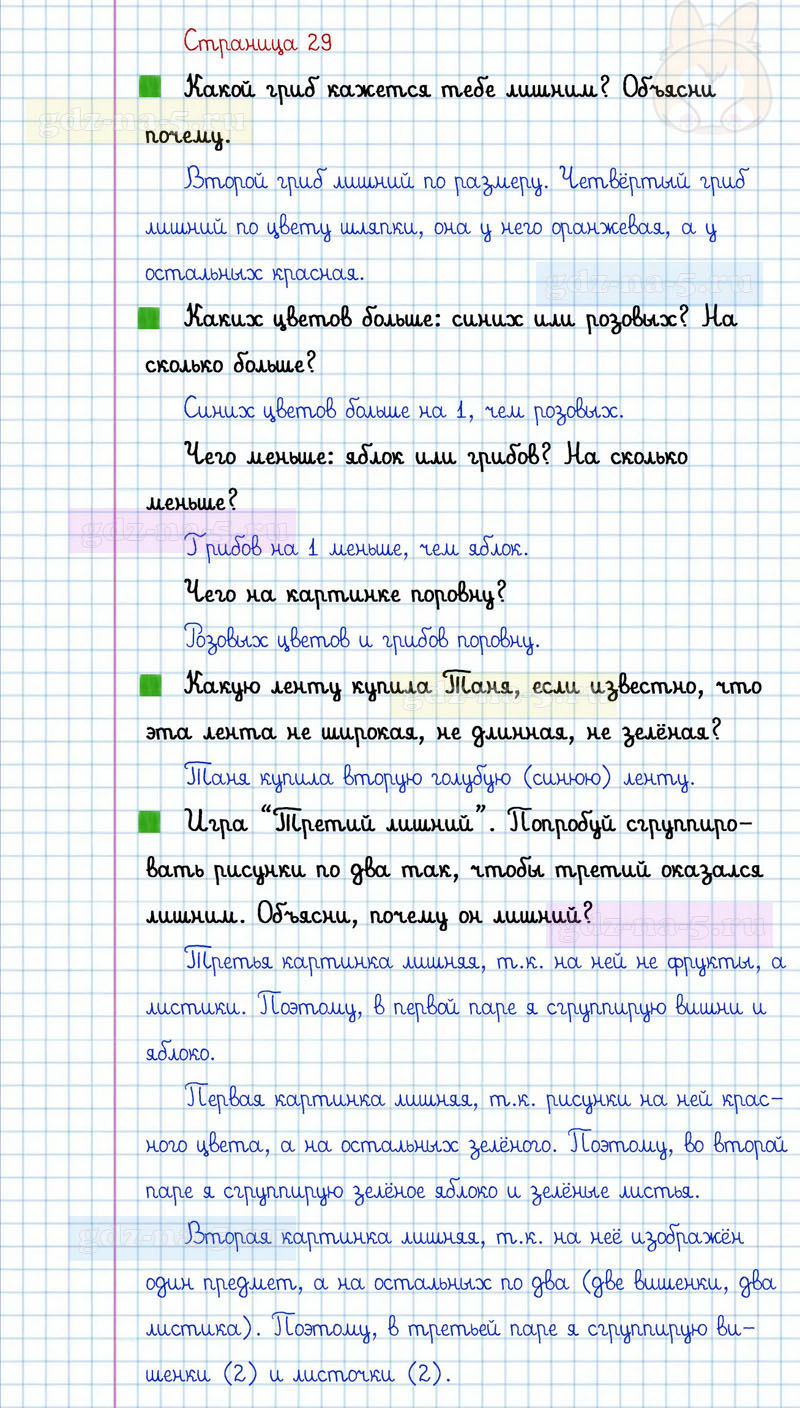 Страница 29
Какой гриб кажется тебе лишним? Объясни
gdz-na-5.ru
почему.
Второй гриб лишний по размеру. Четвёртый гриб
лишний по цвету шляпки, она у него оранжевая, а у
остальных красная.
gdz-na-5.ru
Каких цветов больше: синих или розовых? На
сколько больше?
Синих цветов больше на 1, чем розовых.
Чего меньше: яблок или грибов? На сколько
меньше?
gdz-na-5.ru
Грибов на 1 меньше, чем яблок.
Чего на картинке поровну?
Розовых цветов и грибов поровну.
Какую ленту купила Таня, если известно, что
gdz-na-5.ru
эта лента не широкая, не длинная, не зелёная?
Таня купила вторую голубую (синюю) ленту.
Игра “Третий лишний”. Попробуй сгруппиро-
вать рисунки по два так, чтобы третий оказался
лишним. Объясни, почему он лишний?
gdz-na-5.ru
Третья картинка лишняя, т.к. на ней не фрукты, а
листики. Поэтому, в первой паре я сгруппирую вишни и
яблоко.
Первая картинка лишняя, т.к. рисунки на ней крас-
ного цвета, а на остальных зелёного. Поэтому, во второй
паре я сгруппирую зелёное яблоко и зелёные листья.
gdz-na-5.ru
Вторая картинка лишняя, т.к. на неё изображён
один предмет, а на остальных по два (две вишенки, два
листика). Поэтому, в третьей паре я сгруппирую ви-
шенки (2) и листочки (2).